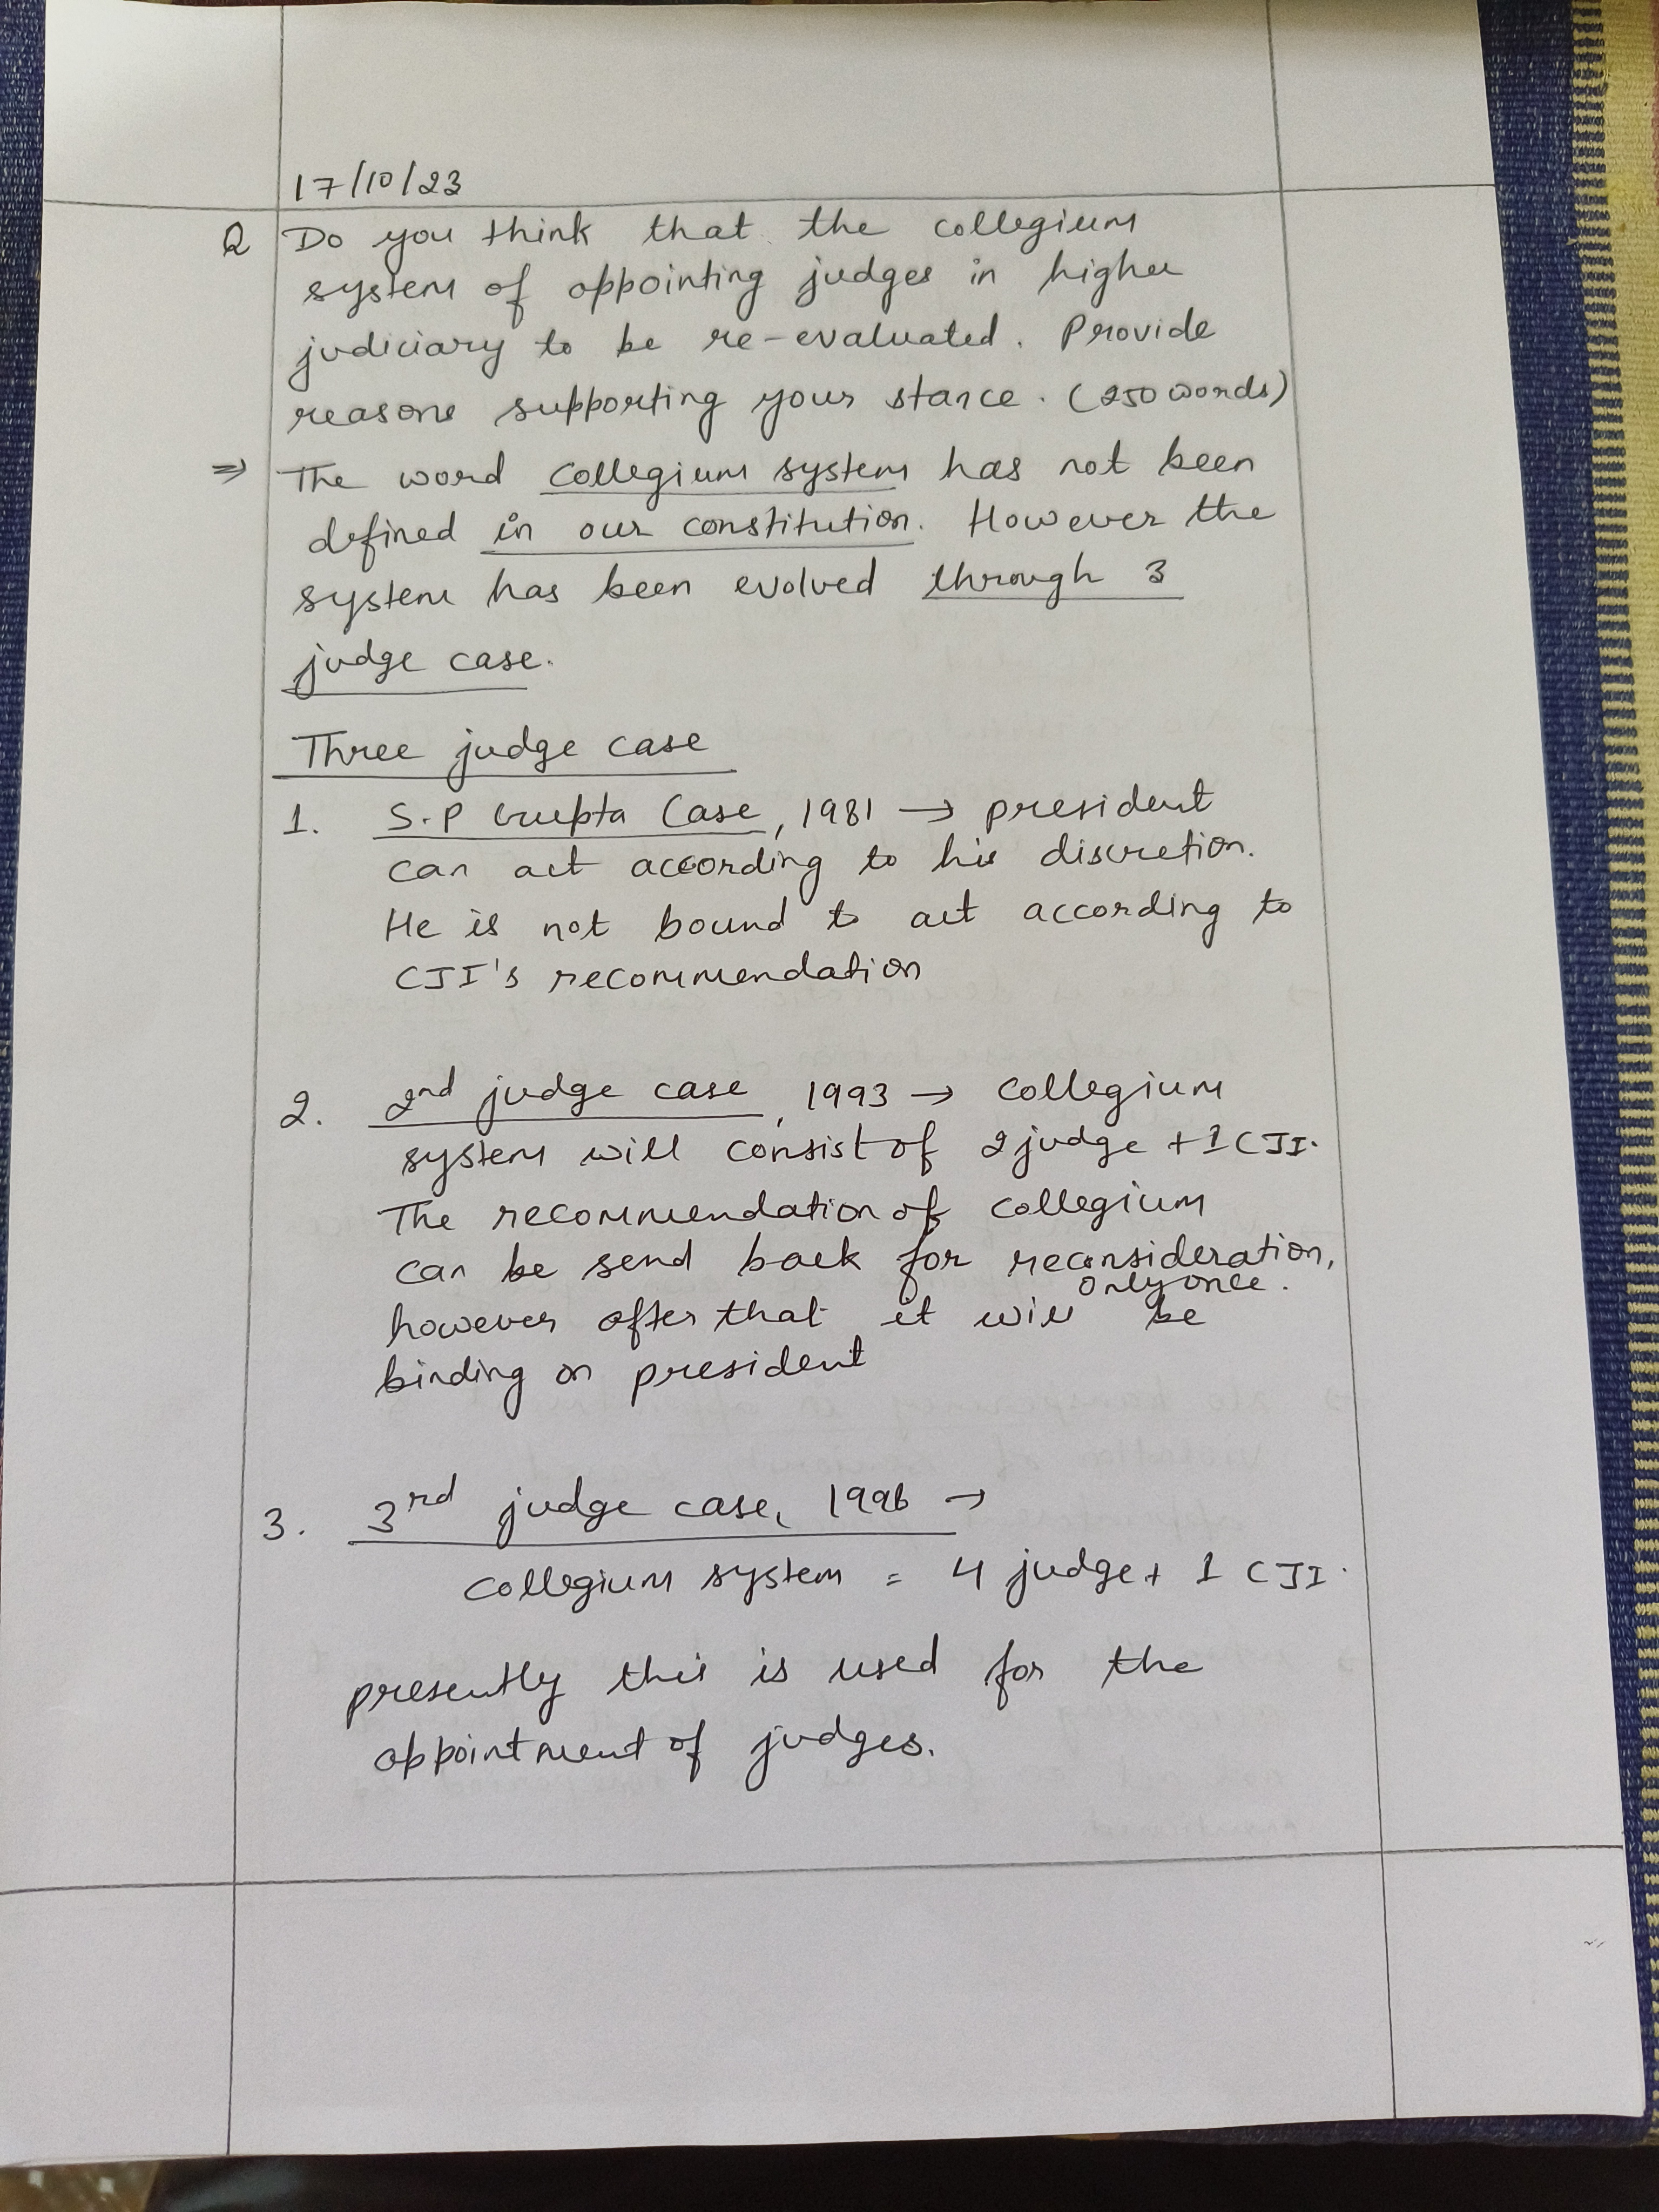 17/10/23
Q Do you think that the collegium
system of appointing judges in higher
judiciary to be re-evaluated. Provide
reasons supporting your stance. (250 words)
⇒ The word collegium system has not been
defined in our constitution. However the
system has been evolved through 3
judge case.
Three judge case
1. S.P Gupta Case, 1981 → president
can act according to his discretion.
He is not bound to act according to
CJI's recommendation
2. 2nd judge case, 1993 → collegium
system will consist of 2 judge + 1 CJI.
The recommendation of collegium
can be send back for reconsideration,
only once.
however after that it will be
binding on president
3. 3rd judge case, 1996 →
collegium system = 4 judge + 1 CJI.
presently this is used for the
appointment of judges.